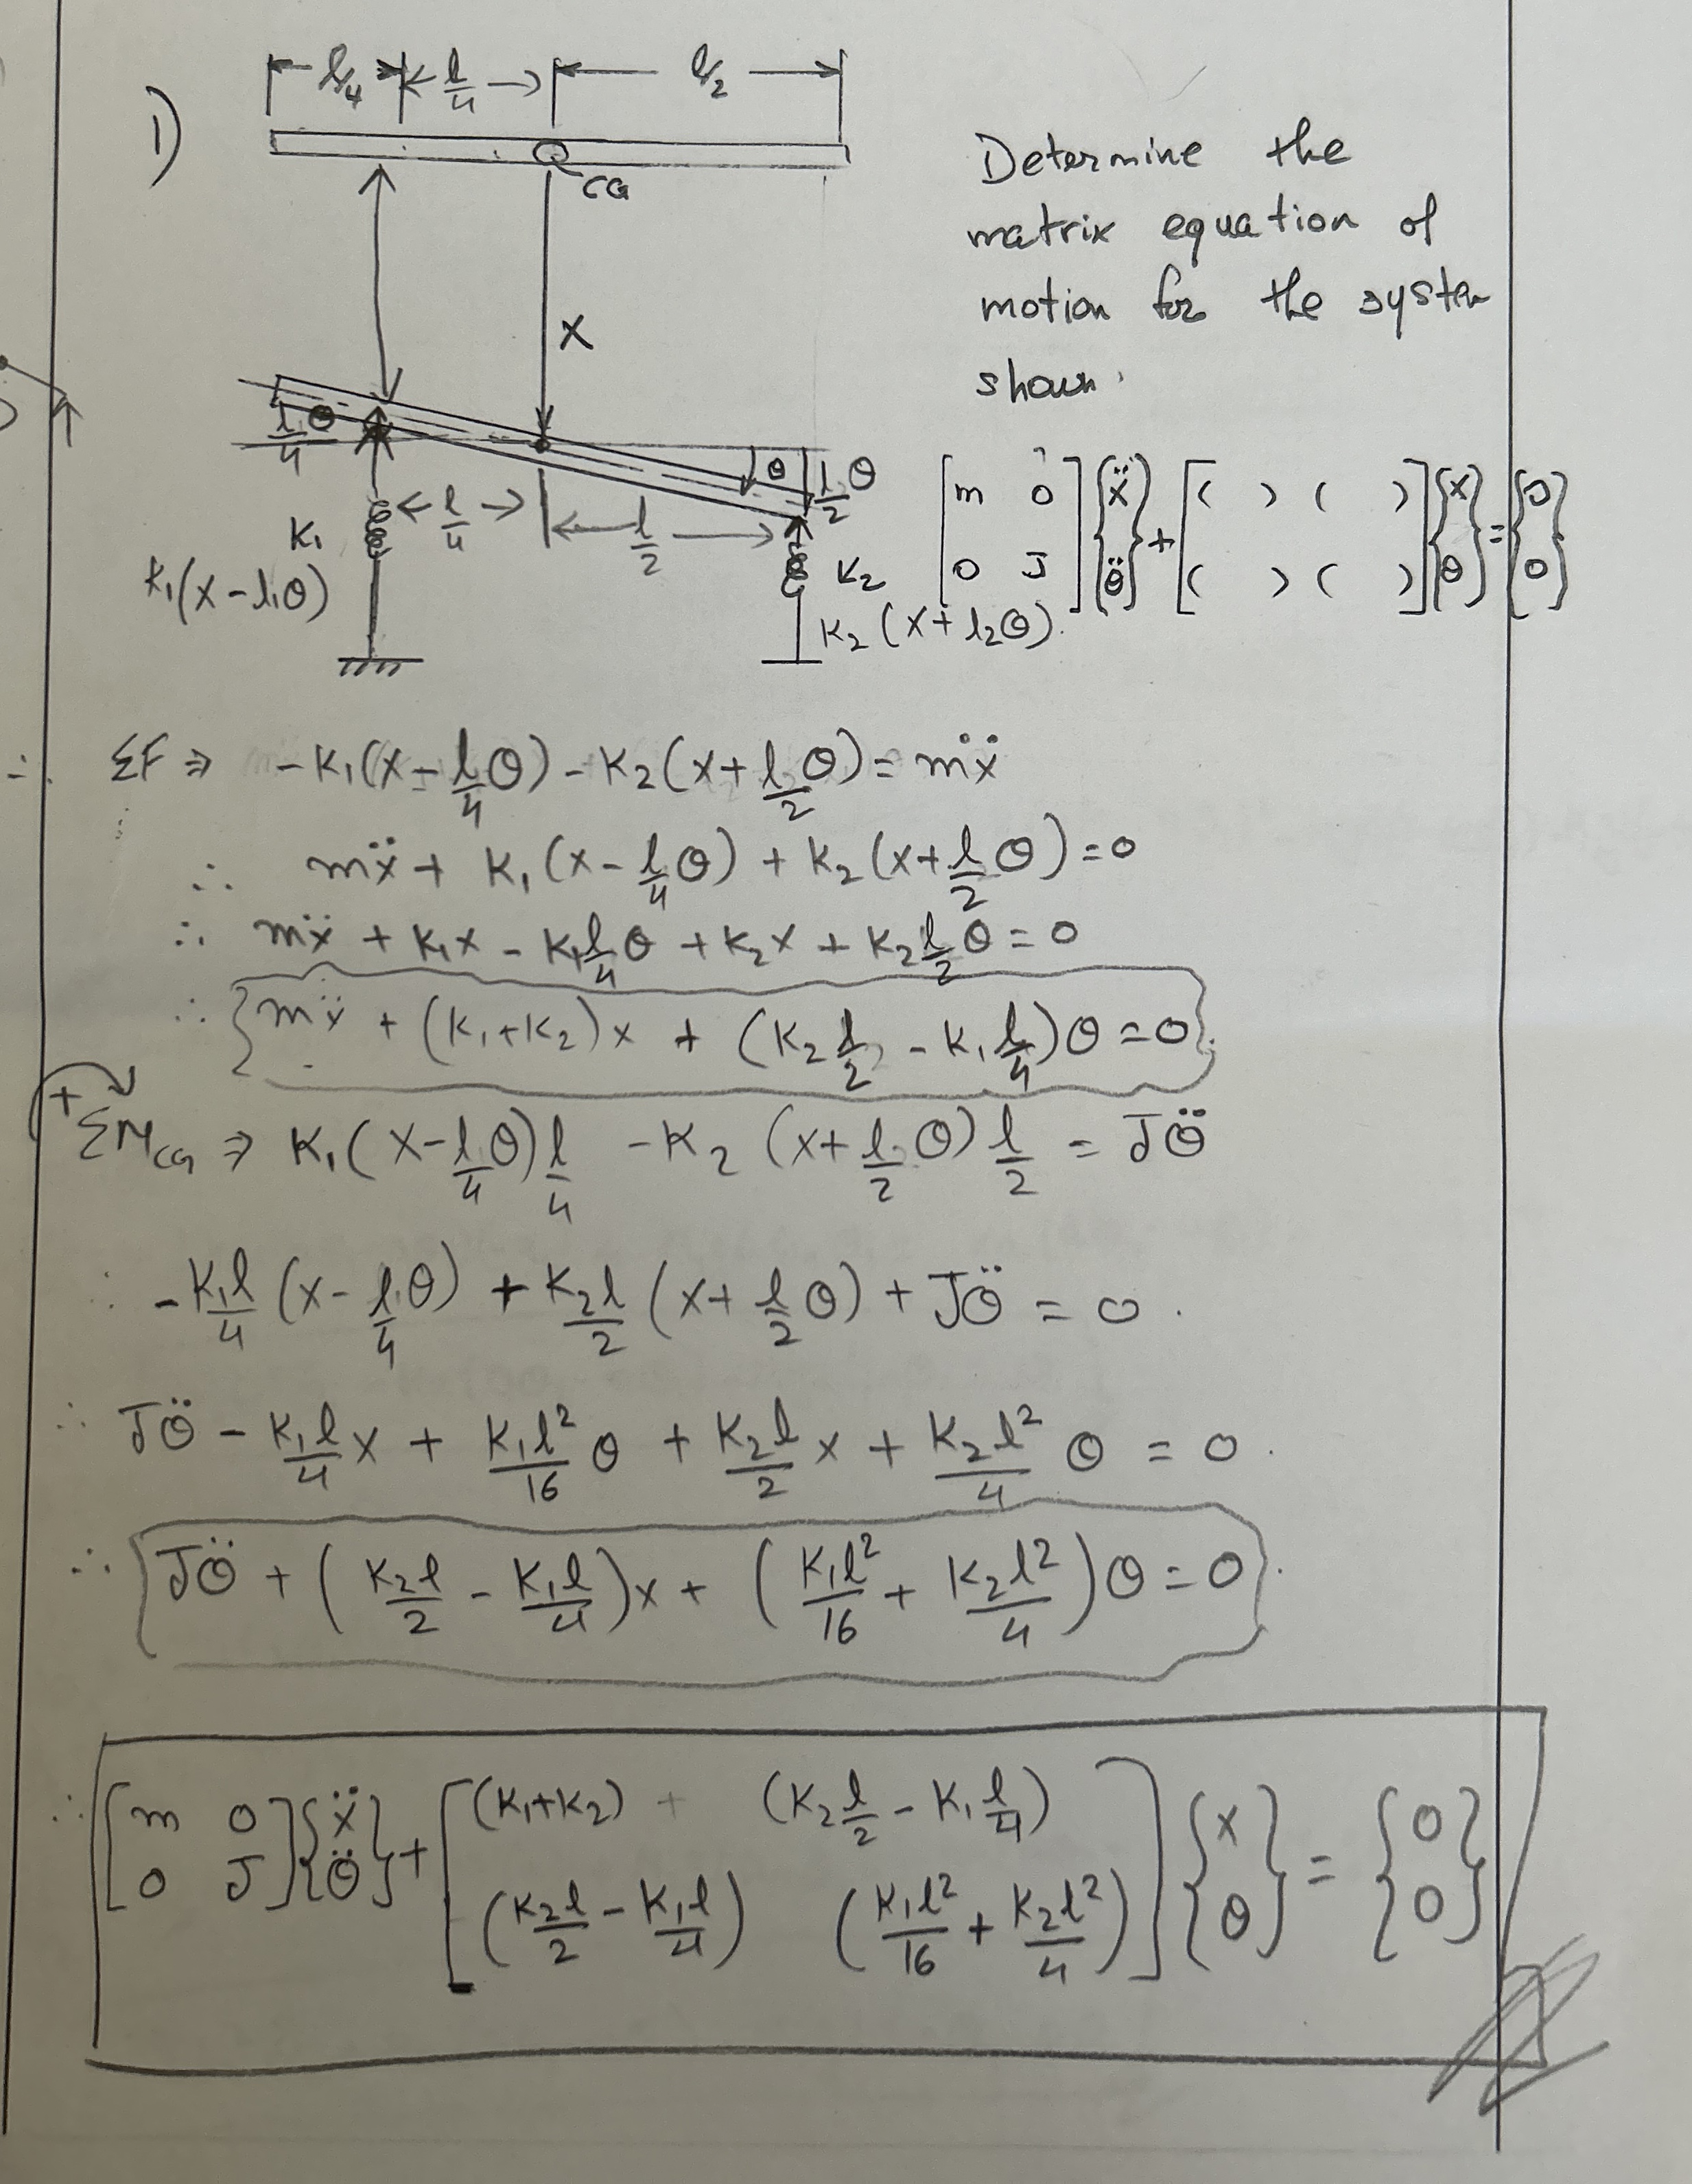 1)
l/4 l/4 l/2
CG
Determine the
matrix equation of
motion for the system
shown.
x
l/4 θ θ l/2 θ
l/4 l/2
K₁ K₂
K₁(x-l₁θ) K₂(x+l₂θ).
[m 0; 0 J]{ẍ; θ̈}+[( ) ( ); ( ) ( )]{x; θ}={0; 0}
∴ ΣF ⇒ -K₁(x-l/4 θ)-K₂(x+l/2 θ)=mẍ
∴ mẍ + K₁(x-l/4 θ) + K₂(x+l/2 θ)=0
∴ mẍ + K₁x - K₁l/4 θ + K₂x + K₂l/2 θ = 0
∴ mẍ + (K₁+K₂)x + (K₂ l/2 - K₁ l/4)θ = 0.
+ ΣM_CG ⇒ K₁(x-l/4 θ)l/4 - K₂(x+l/2 θ)l/2 = Jθ̈
∴ -K₁l/4 (x-l/4 θ) + K₂l/2 (x+l/2 θ) + Jθ̈ = 0.
∴ Jθ̈ - K₁l/4 x + K₁l²/16 θ + K₂l/2 x + K₂l²/4 θ = 0.
∴ Jθ̈ + (K₂l/2 - K₁l/4)x + (K₁l²/16 + K₂l²/4)θ = 0.
∴ [m 0; 0 J]{ẍ; θ̈}+[(K₁+K₂) + (K₂ l/2 - K₁ l/4); (K₂l/2 - K₁l/4) (K₁l²/16 + K₂l²/4)]{x; θ} = {0; 0}